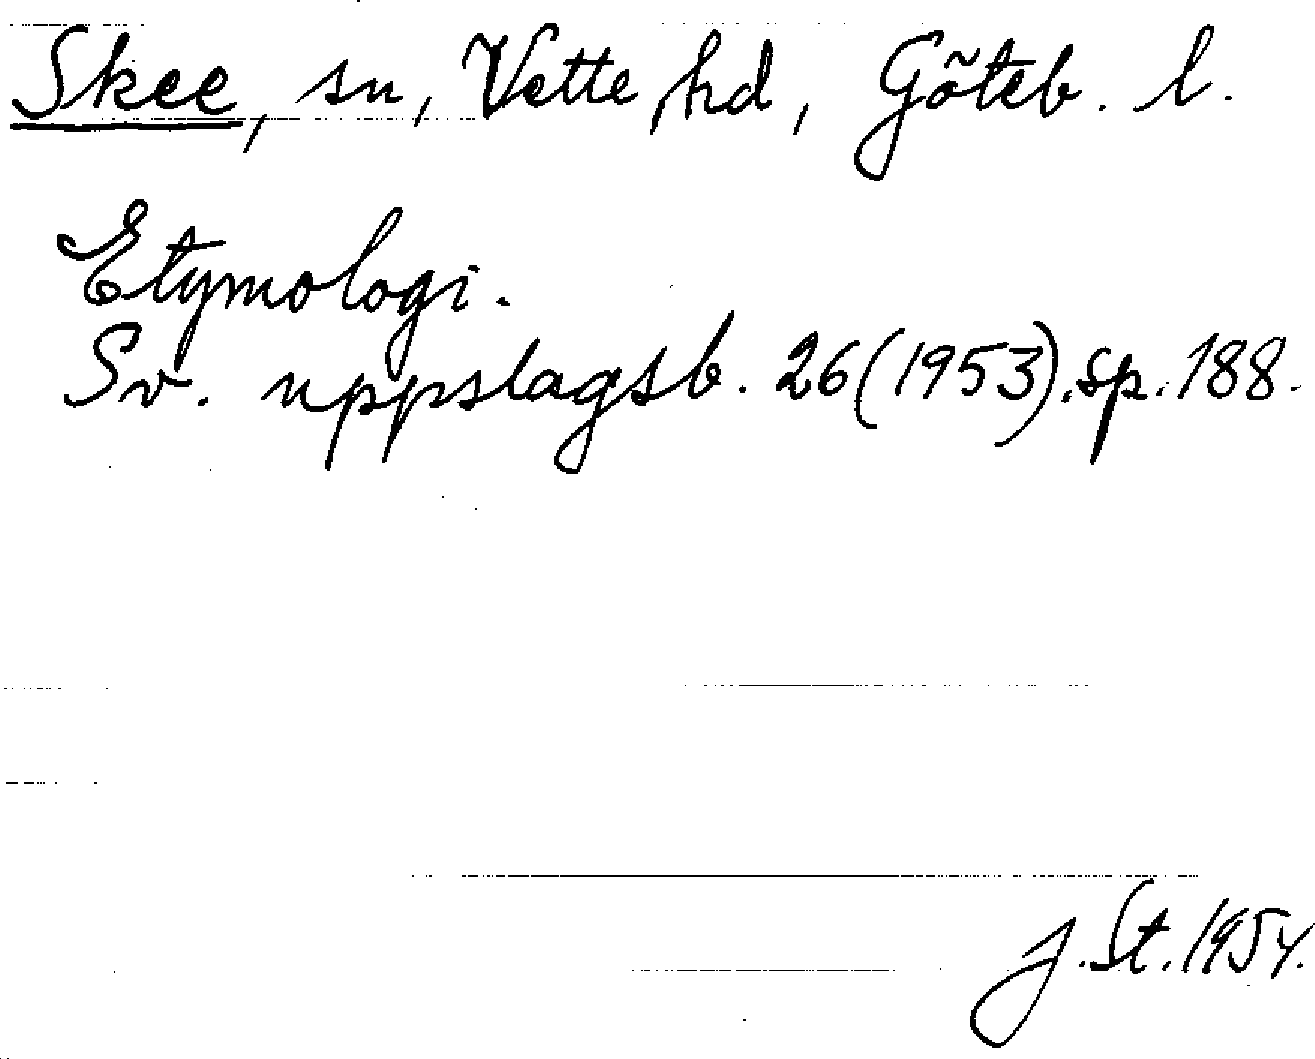 Skee, sn, Vette hd, Göteb. l.
Etymologi.
Sv. uppslagsb. 26 (1953). sp. 188.
J. St. 1954.